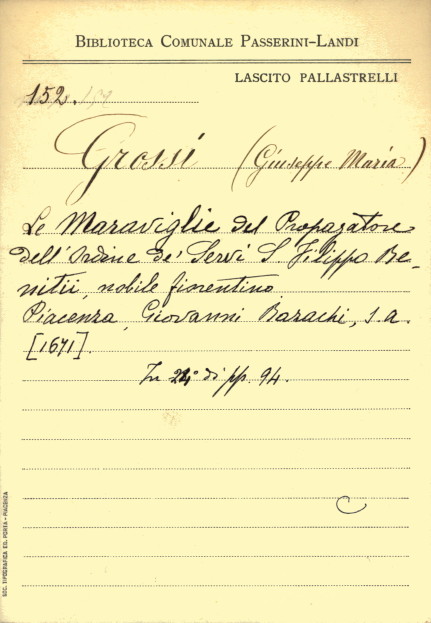 BIBLIOTECA COMUNALE PASSERINI-LANDI
LASCITO PALLASTRELLI
152.
Grossi (Giuseppe Maria)
Le Maraviglie del Propagatore
dell'Ordine de' Servi S Filippo Be-
nitii, nobile fiorentino
Piacenza, Giovanni Bazachi, s. a.
[1671].
In 24° di pp. 94.
C
SOC. TIPOGRAFICA ED. PORTA - PIACENZA